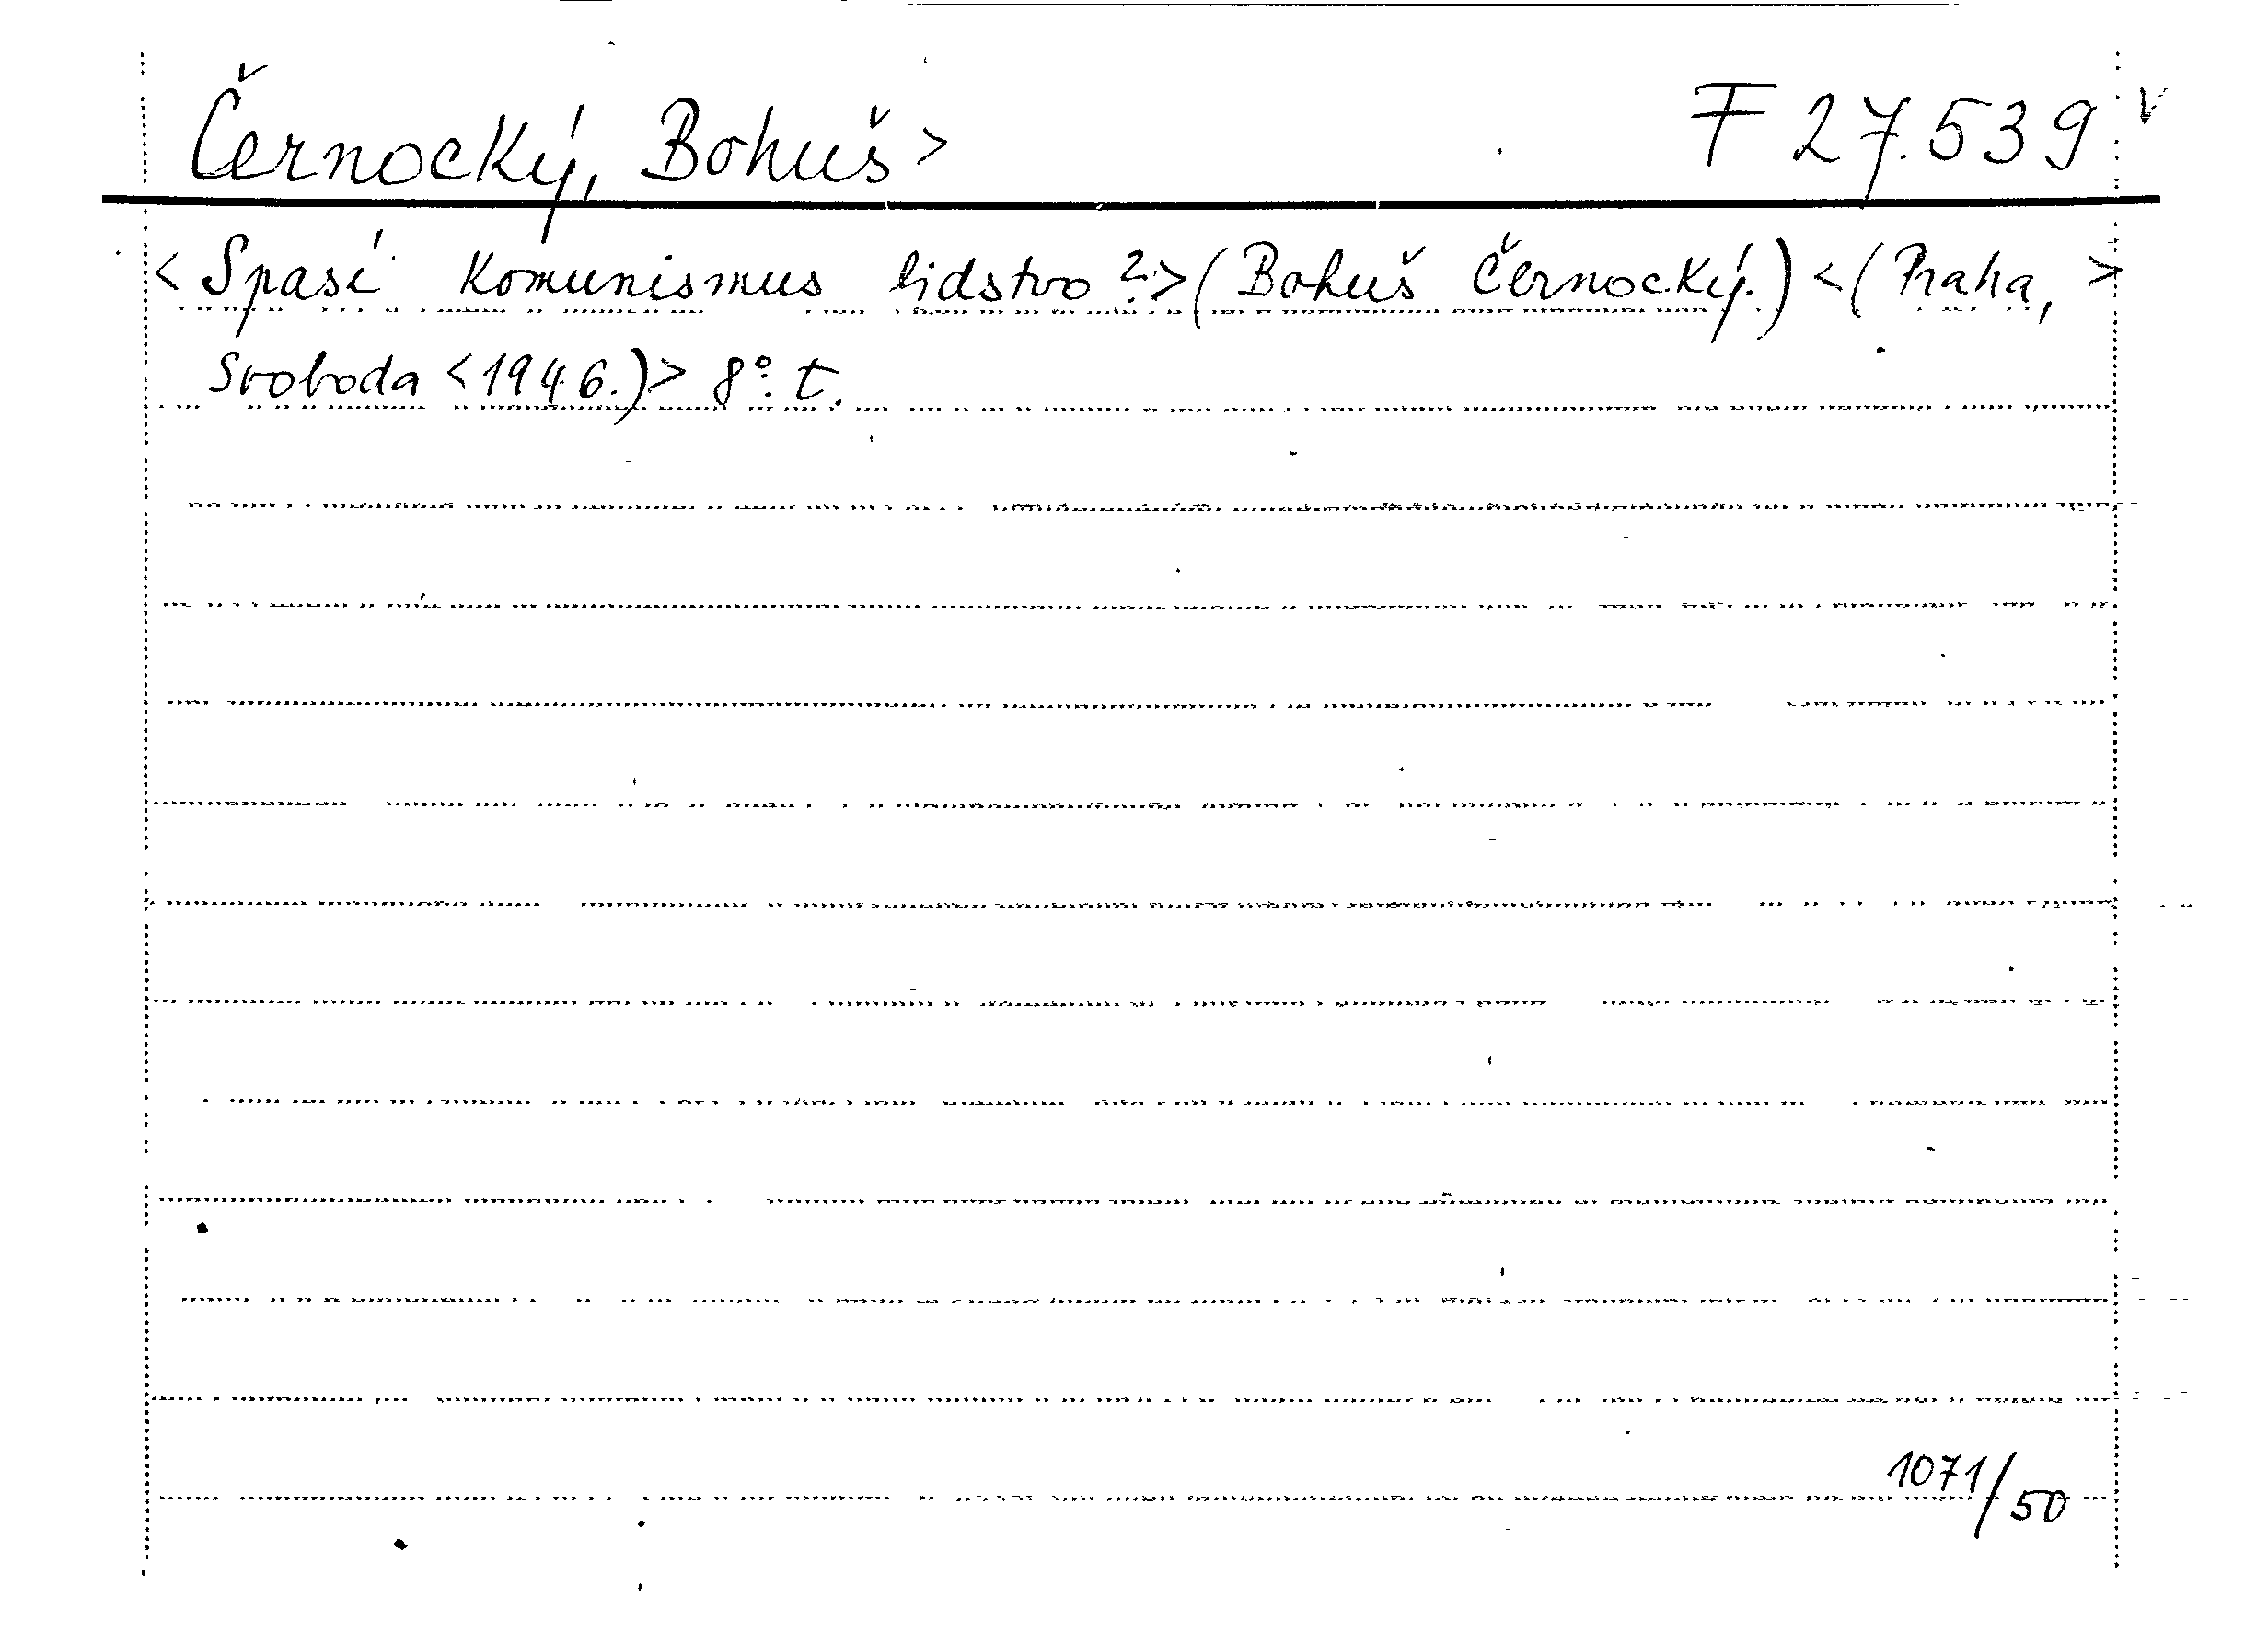 Černocký, Bohuš> F 27.539 v
<Spasí komunismus lidstvo?>(Bohuš Černocký.)<(Praha,>
Svoboda <1946.)> 8° t.
1071/50